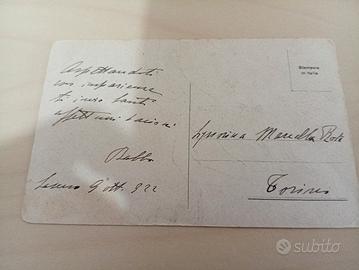 Aspettandoti
con impazienza
ti invio tanti
affettuosi bacioni
Babbo
9 ott. 922
Stampato
in Italia
Signorina Marcella
Torino
subito